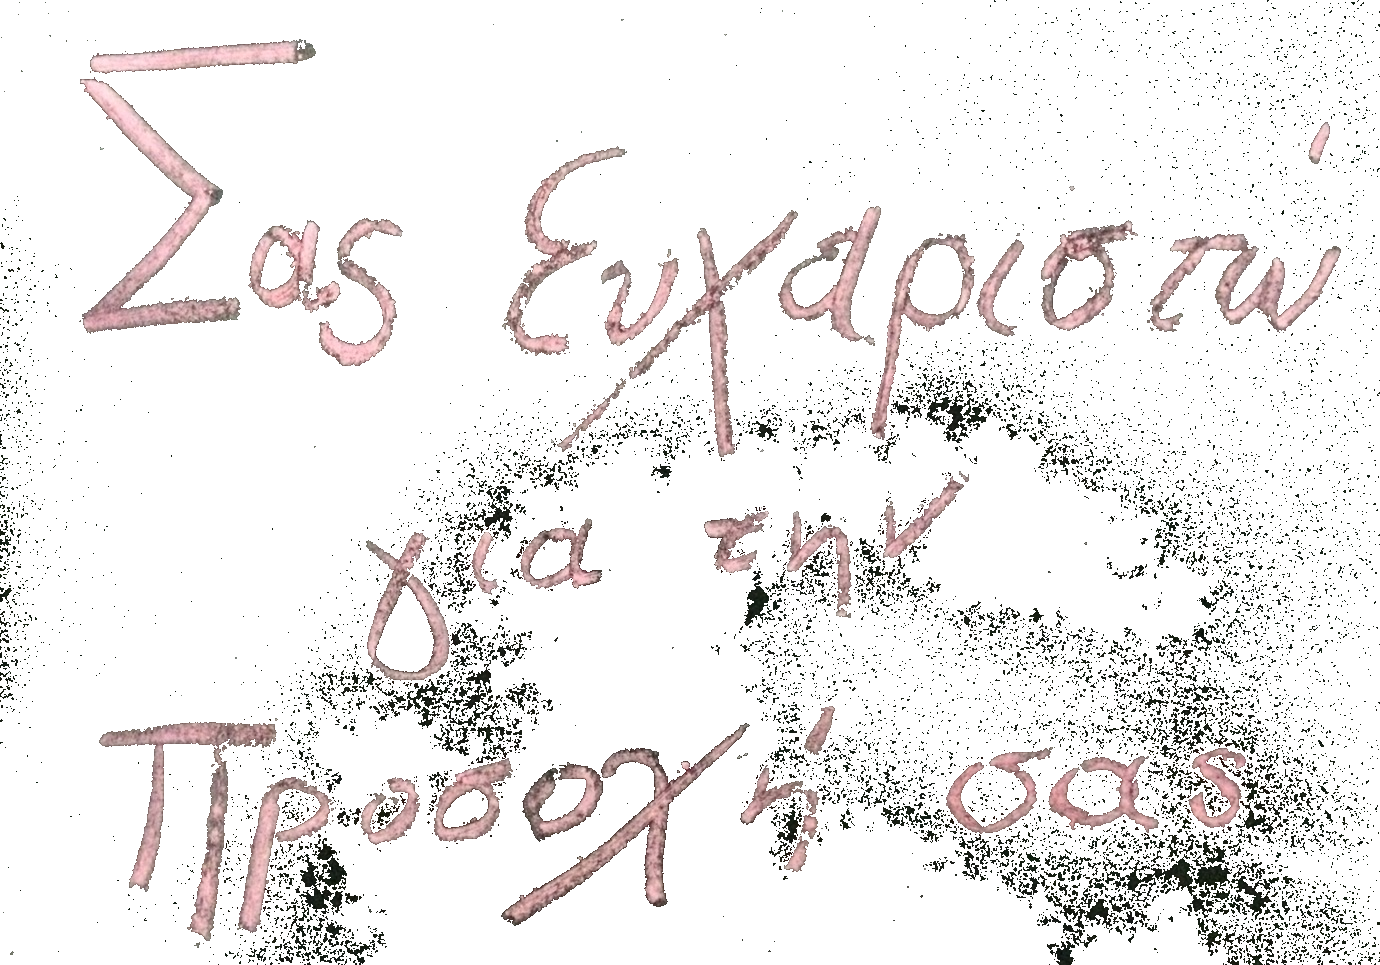 Σας Ευχαριστώ
για την
Προσοχή σας